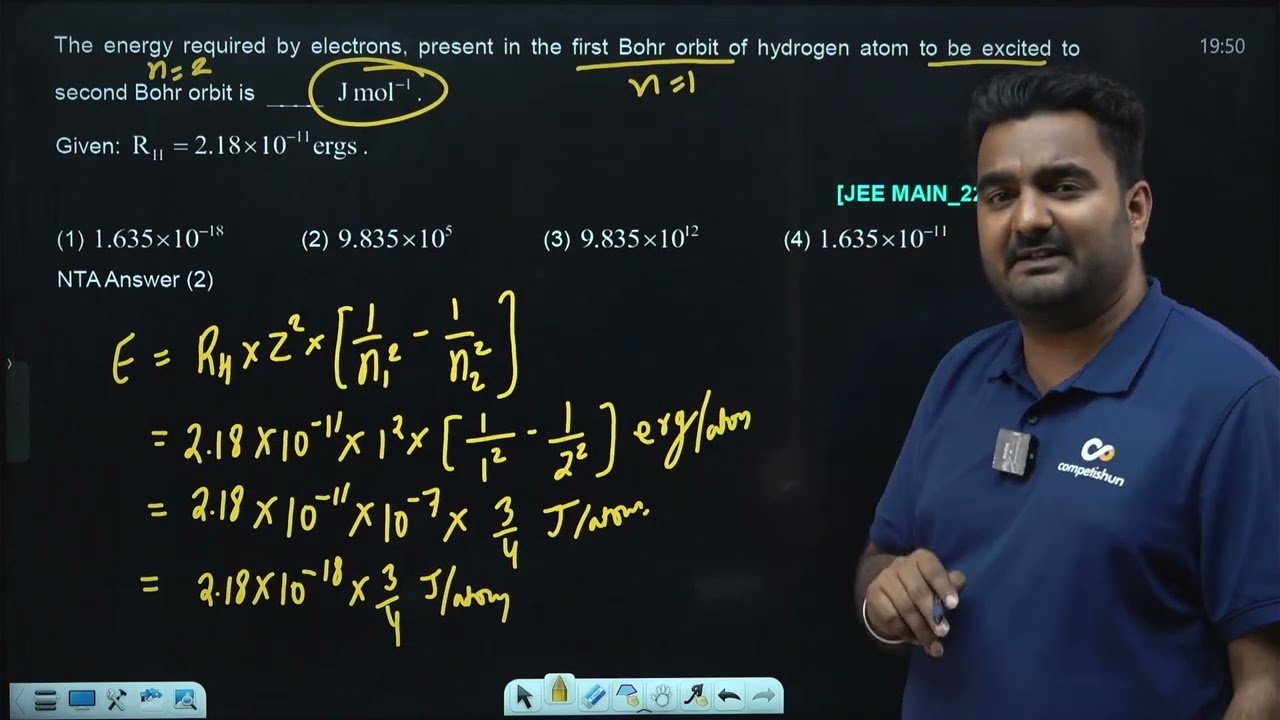 The energy required by electrons, present in the first Bohr orbit of hydrogen atom to be excited to
19:50
n=2
second Bohr orbit is ____ J mol⁻¹.
n=1
Given: R_H = 2.18×10⁻¹¹ ergs.
[JEE MAIN_22
(1) 1.635×10⁻¹⁸ (2) 9.835×10⁵ (3) 9.835×10¹² (4) 1.635×10⁻¹¹
NTA Answer (2)
E = R_H × Z² × [1/n₁² - 1/n₂²]
= 2.18 × 10⁻¹¹ × 1² × [1/1² - 1/2²] erg/atom
= 2.18 × 10⁻¹¹ × 10⁻⁷ × 3/4 J/atom.
= 2.18 × 10⁻¹⁸ × 3/4 J/atom
competishun